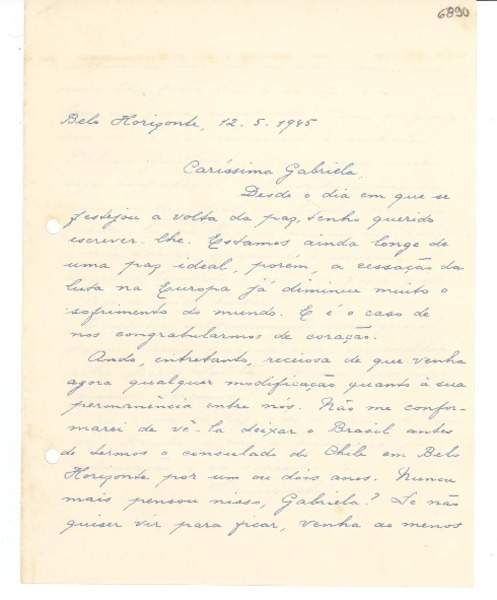 6890
Belo Horizonte, 12-5-1945
Caríssima Gabriela,
Desde o dia em que se
festejou a volta da paz, tenho querido
escrever-lhe. Estamos ainda longe de
uma paz ideal, porém, a cessação da
luta na Europa já diminue muito o
sofrimento do mundo. E é o caso de
nos congratularmos de coração.
Ando, entretanto, receiosa de que venha
agora qualquer modificação quanto à sua
permanência entre nós. Não me confor-
marei de vê-la deixar o Brasil antes
de termos o consulado do Chile em Belo
Horizonte por um ou dois anos. Nunca
mais pensou nisso, Gabriela? Se não
quiser vir para ficar, venha ao menos